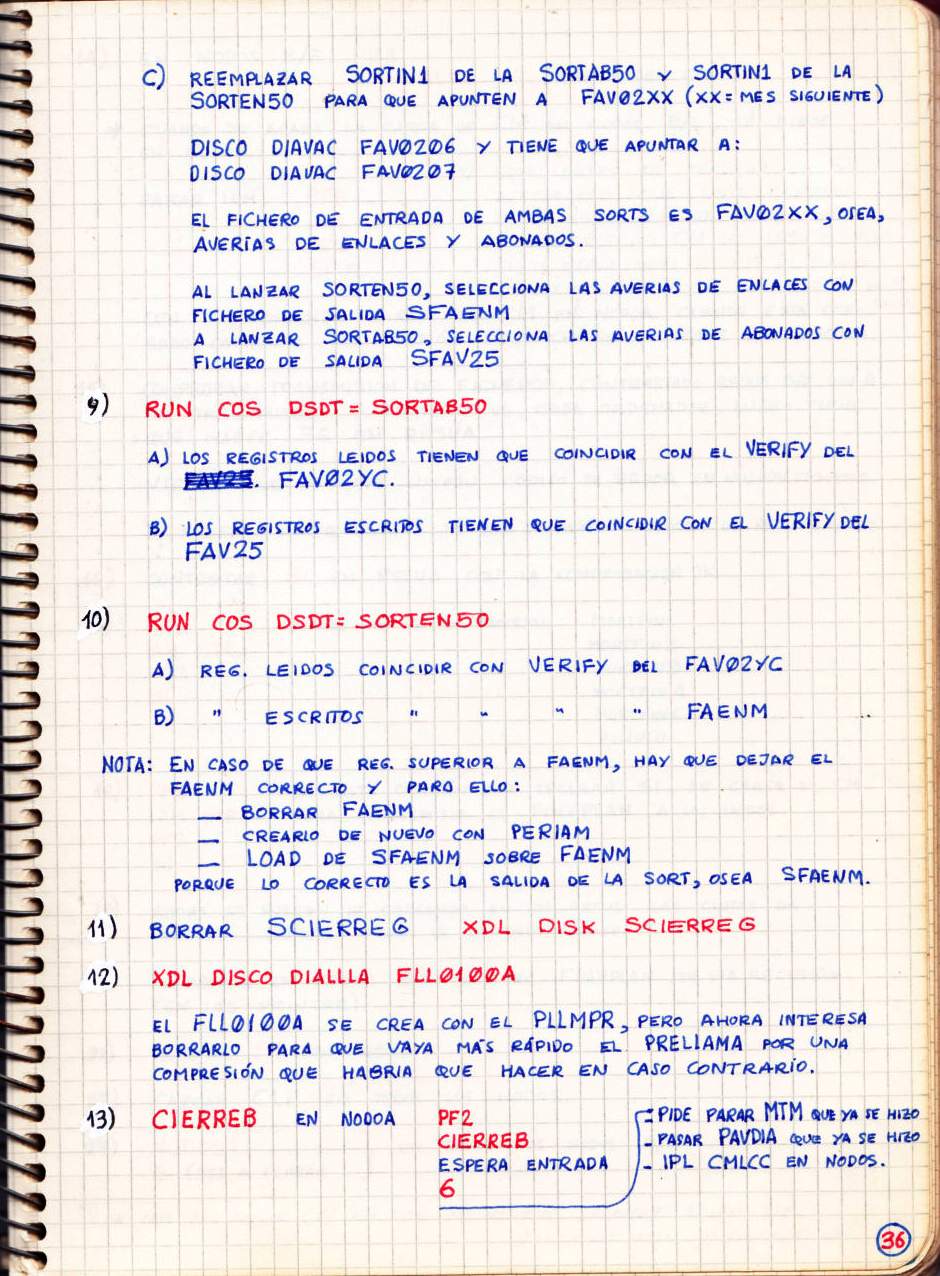 C) REEMPLAZAR SORTIN1 DE LA SORTAB50 Y SORTIN1 DE LA
SORTEN50 PARA QUE APUNTEN A FAVØ2XX (XX= MES SIGUIENTE)
DISCO DIAVAC FAVØ206 Y TIENE QUE APUNTAR A:
DISCO DIAVAC FAVØ207
EL FICHERO DE ENTRADA DE AMBAS SORTS ES FAVØ2XX, OSEA,
AVERÍAS DE ENLACES Y ABONADOS.
AL LANZAR SORTEN50, SELECCIONA LAS AVERIAS DE ENLACES CON
FICHERO DE SALIDA SFAENM
A LANZAR SORTAB50, SELECCIONA LAS AVERIAS DE ABONADOS CON
FICHERO DE SALIDA SFAV25
9) RUN COS DSDT= SORTAB50
A) LOS REGISTROS LEIDOS TIENEN QUE COINCIDIR CON EL VERIFY DEL
FAV25. FAVØ2YC.
B) LOS REGISTROS ESCRITOS TIENEN QUE COINCIDIR CON EL VERIFY DEL
FAV25
10) RUN COS DSDT= SORTEN50
A) REG. LEIDOS COINCIDIR CON VERIFY DEL FAVØ2YC
B) " ESCRITOS " " " " FAENM
NOTA: EN CASO DE QUE REG. SUPERIOR A FAENM, HAY QUE DEJAR EL
FAENM CORRECTO Y PARA ELLO:
— BORRAR FAENM
— CREARLO DE NUEVO CON PERIAM
— LOAD DE SFAENM SOBRE FAENM
PORQUE LO CORRECTO ES LA SALIDA DE LA SORT, OSEA SFAENM.
11) BORRAR SCIERREG XDL DISK SCIERREG
12) XDL DISCO DIALLLA FLLØ1ØØA
EL FLLØ1ØØA SE CREA CON EL PLLMPR, PERO AHORA INTERESA
BORRARLO PARA QUE VAYA MÁS RÁPIDO EL PRELIAMA POR UNA
COMPRESIÓN QUE HABRIA QUE HACER EN CASO CONTRARIO.
13) CIERREB EN NODOA PF2
CIERREB
ESPERA ENTRADA
6
- PIDE PARAR MTM QUE YA SE HIZO
- PASAR PAVDIA QUE YA SE HIZO
- IPL CMLCC EN NODOS.
36